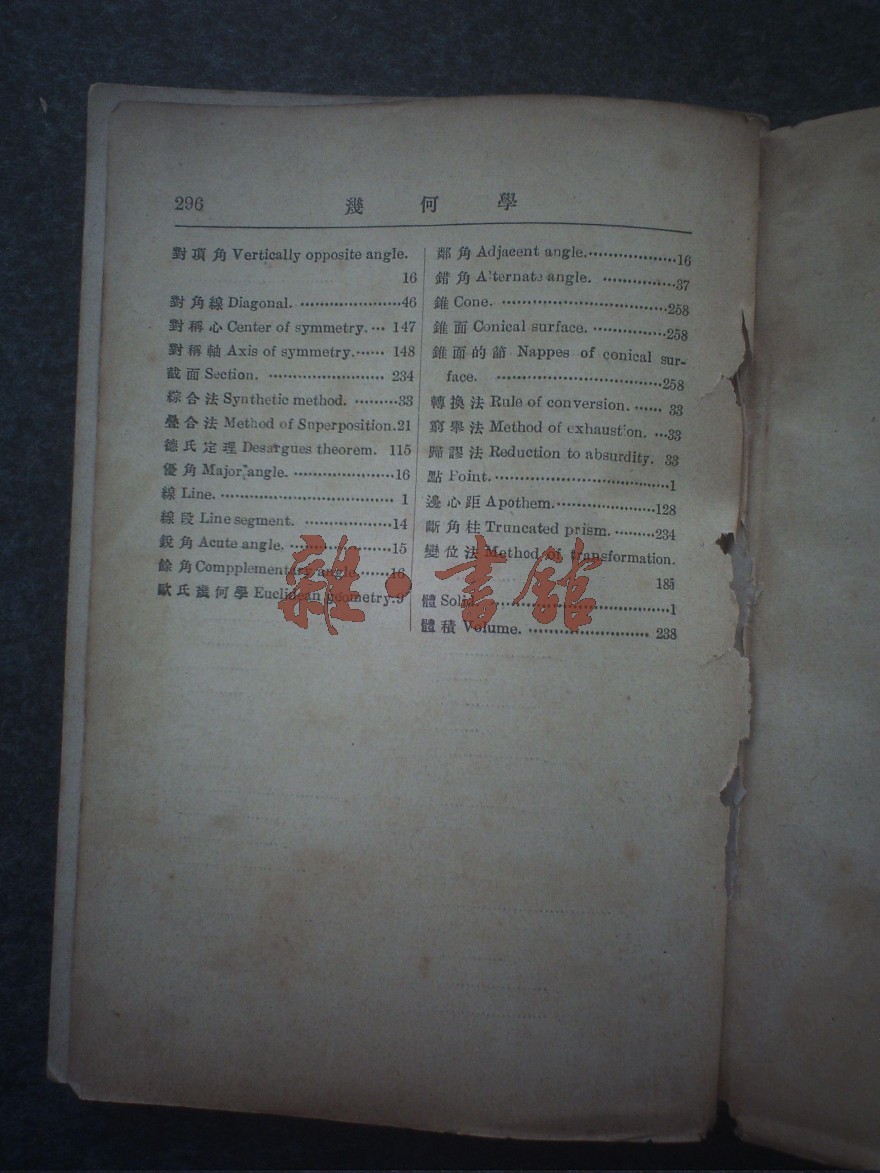 296 幾何學
對頂角 Vertically opposite angle.
16
對角線 Diagonal. ····················46
對稱心 Center of symmetry.··· 147
對稱軸 Axis of symmetry.······ 148
截面 Section. ······················· 234
綜合法 Synthetic method. ·········33
疊合法 Method of Superposition.21
德氏定理 Desargues theorem. 115
優角 Major angle. ····················16
線 Line. ··································· 1
線段 Line segment. ·················14
銳角 Acute angle. ····················15
餘角 Compplementary angle ······16
歐氏幾何學 Euclidean geometry.9
鄰角 Adjacent angle.··················16
錯角 Alternate angle. ···············37
錐 Cone. ·································258
錐面 Conical surface. ···············258
錐面的節 Nappes of conical sur-
face. ·································258
轉換法 Rule of conversion. ······ 33
窮舉法 Method of exhaustion. ···33
歸謬法 Reduction to absurdity. 33
點 Point.···································1
邊心距 Apothem.····················128
斷角柱 Truncated prism. ·········234
變位法 Method of transformation.
185
體 Solid. ···································1
體積 Volume. ························ 238
雜·書館